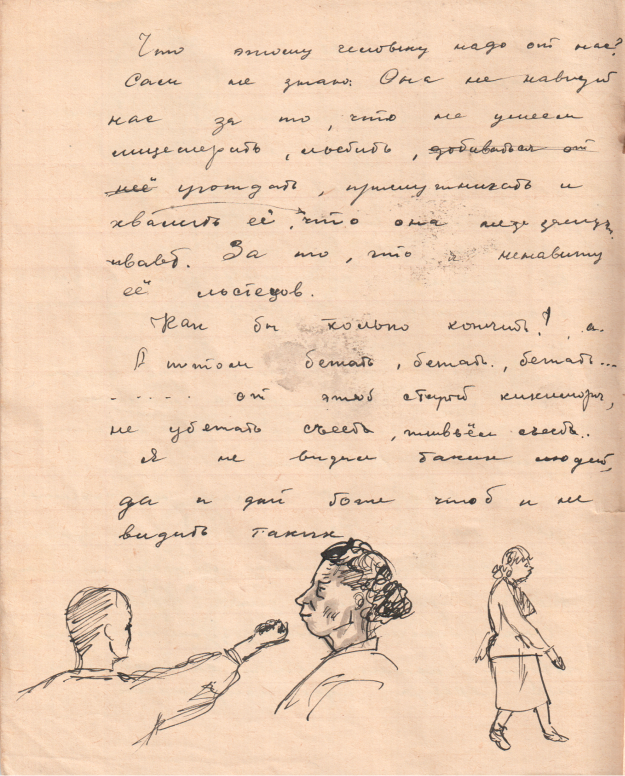 Что этому человеку надо от нас?
Сам не знаю. Она не навидит
нас за то, что не умеем
лицемерить, льстить, добиваться от
неё угождать, прислуживать и
хвалить её, что она
За то, что я ненавижу
её льстецов.
Как бы только кончить! а.
А потом бежать, бежать., бежать...
..... от этой старой кикиморы,
не убежать съесть, живьём съесть..
Я не видел таких людей,
да и дай боже чтоб и не
видить таких